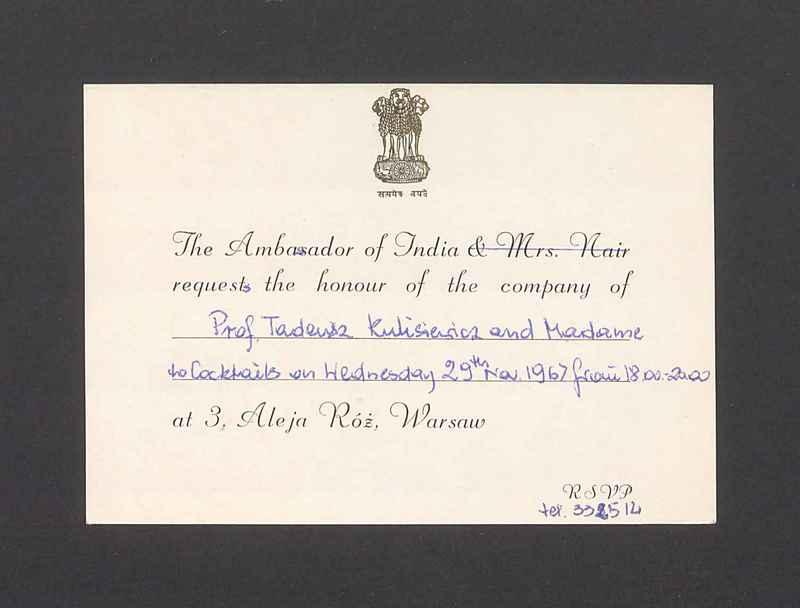 सत्यमेव जयते
The Ambassador of India & Mrs. Nair
requests the honour of the company of
Prof. Tadeusz Kulisiewicz and Madame
to Cocktails on Wednesday 29th Nov. 1967 from 18.00-20.00
at 3, Aleja Róż, Warsaw
RSVP
tel. 332514